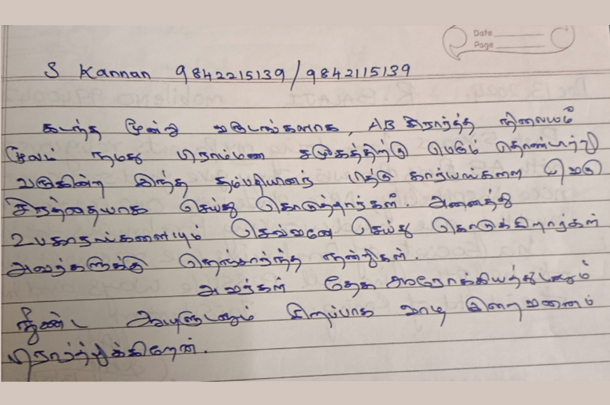 Date
Page
S Kannan 9842215139/9842115139
கடந்த மூன்று வருடங்களாக, AB திருமண நிலையம்
மூலம் நமது பிராமண சமூகத்திற்கு பெரும் தொண்டாற்றி
வருகின்ற இந்த தம்பதியினர் எனது காரியங்களை வெகு
சிரத்தையாக செய்து கொடுத்தார்கள். அனைத்து
உபகாரங்களையும் செவ்வனே செய்து கொடுக்கிறார்கள்
அவர்களுக்கு நெஞ்சார்ந்த நன்றிகள்.
அவர்கள் தேக ஆரோக்கியத்துடனும்
நீண்ட ஆயுளுடனும் சிறப்பாக வாழ இறைவனை
பிரார்த்திக்கிறேன்.